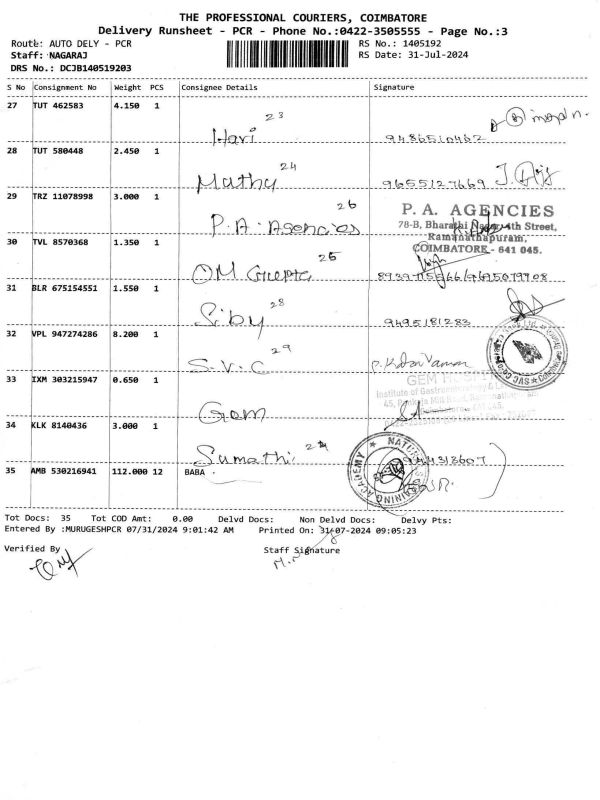 THE PROFESSIONAL COURIERS, COIMBATORE
Delivery Runsheet - PCR - Phone No.:0422-3505555 - Page No.:3
Route: AUTO DELY - PCR RS No.: 1405192
Staff: NAGARAJ RS Date: 31-Jul-2024
DRS No.: DCJB140519203
S No Consignment No Weight PCS Consignee Details Signature
27 TUT 462583 4.150 1
23
Hari 9486510462
28 TUT 580448 2.450 1
24
Mathy 9655127669
29 TRZ 11078998 3.000 1
26
P.A. Agencies
P. A. AGENCIES
78-B, Bharathi Nagar 4th Street,
Ramanathapuram,
COIMBATORE - 641 045.
30 TVL 8570368 1.350 1
25
OM Gupta
31 BLR 675154551 1.550 1
28
Siby 9495181283
32 VPL 947274286 8.200 1
29
S.V.C
33 IXM 303215947 0.650 1
GEM
Institute of Gastroenterology &
Gem
34 KLK 8140436 3.000 1
Sumathi
NATURE TRAINING ACADEMY
35 AMB 530216941 112.000 12 BABA
Tot Docs: 35 Tot COD Amt: 0.00 Delvd Docs: Non Delvd Docs: Delvy Pts:
Entered By :MURUGESHPCR 07/31/2024 9:01:42 AM Printed On: 31-07-2024 09:05:23
Verified By Staff Signature